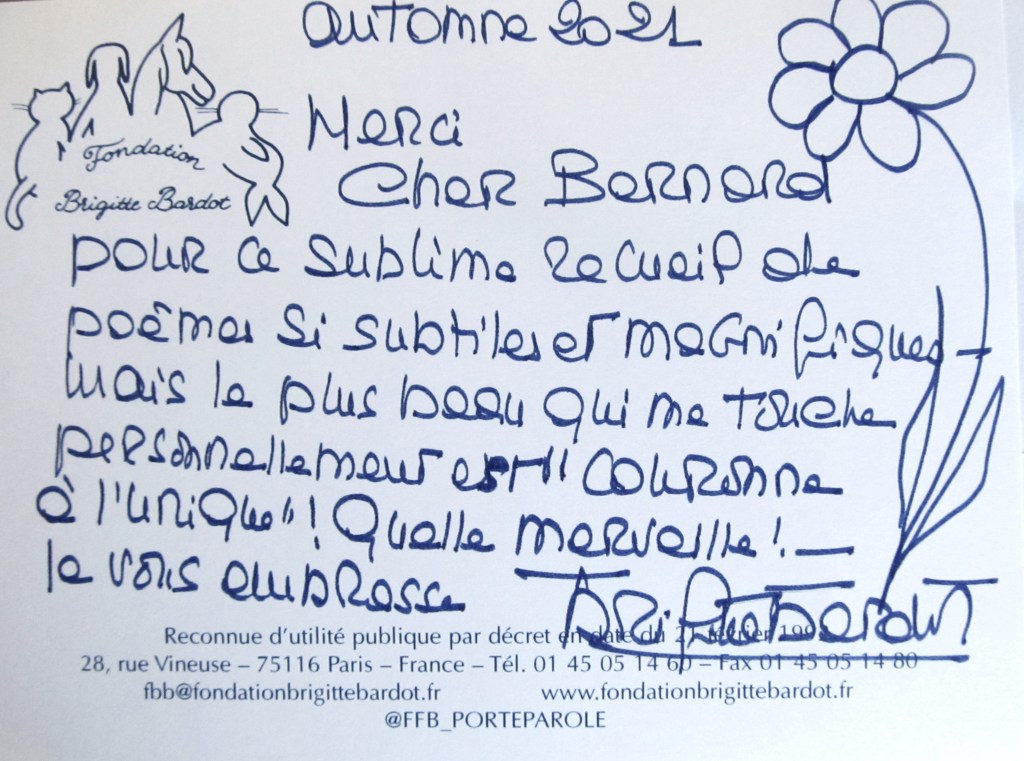 Automne 2021
Fondation
Brigitte Bardot
Merci
Cher Bernard
pour ce sublime recueil de
poèmes si subtiles et magnifiques
mais le plus beau qui me touche
personnellement est "couronne
à l'unique"! Quelle merveille! —
Je vous embrasse
Brigitte Bardot
Reconnue d'utilité publique par décret en date du 21 février 199
28, rue Vineuse – 75116 Paris – France – Tél. 01 45 05 14 60 – Fax 01 45 05 14 80
fbb@fondationbrigittebardot.fr www.fondationbrigittebardot.fr
@FFB_PORTEPAROLE